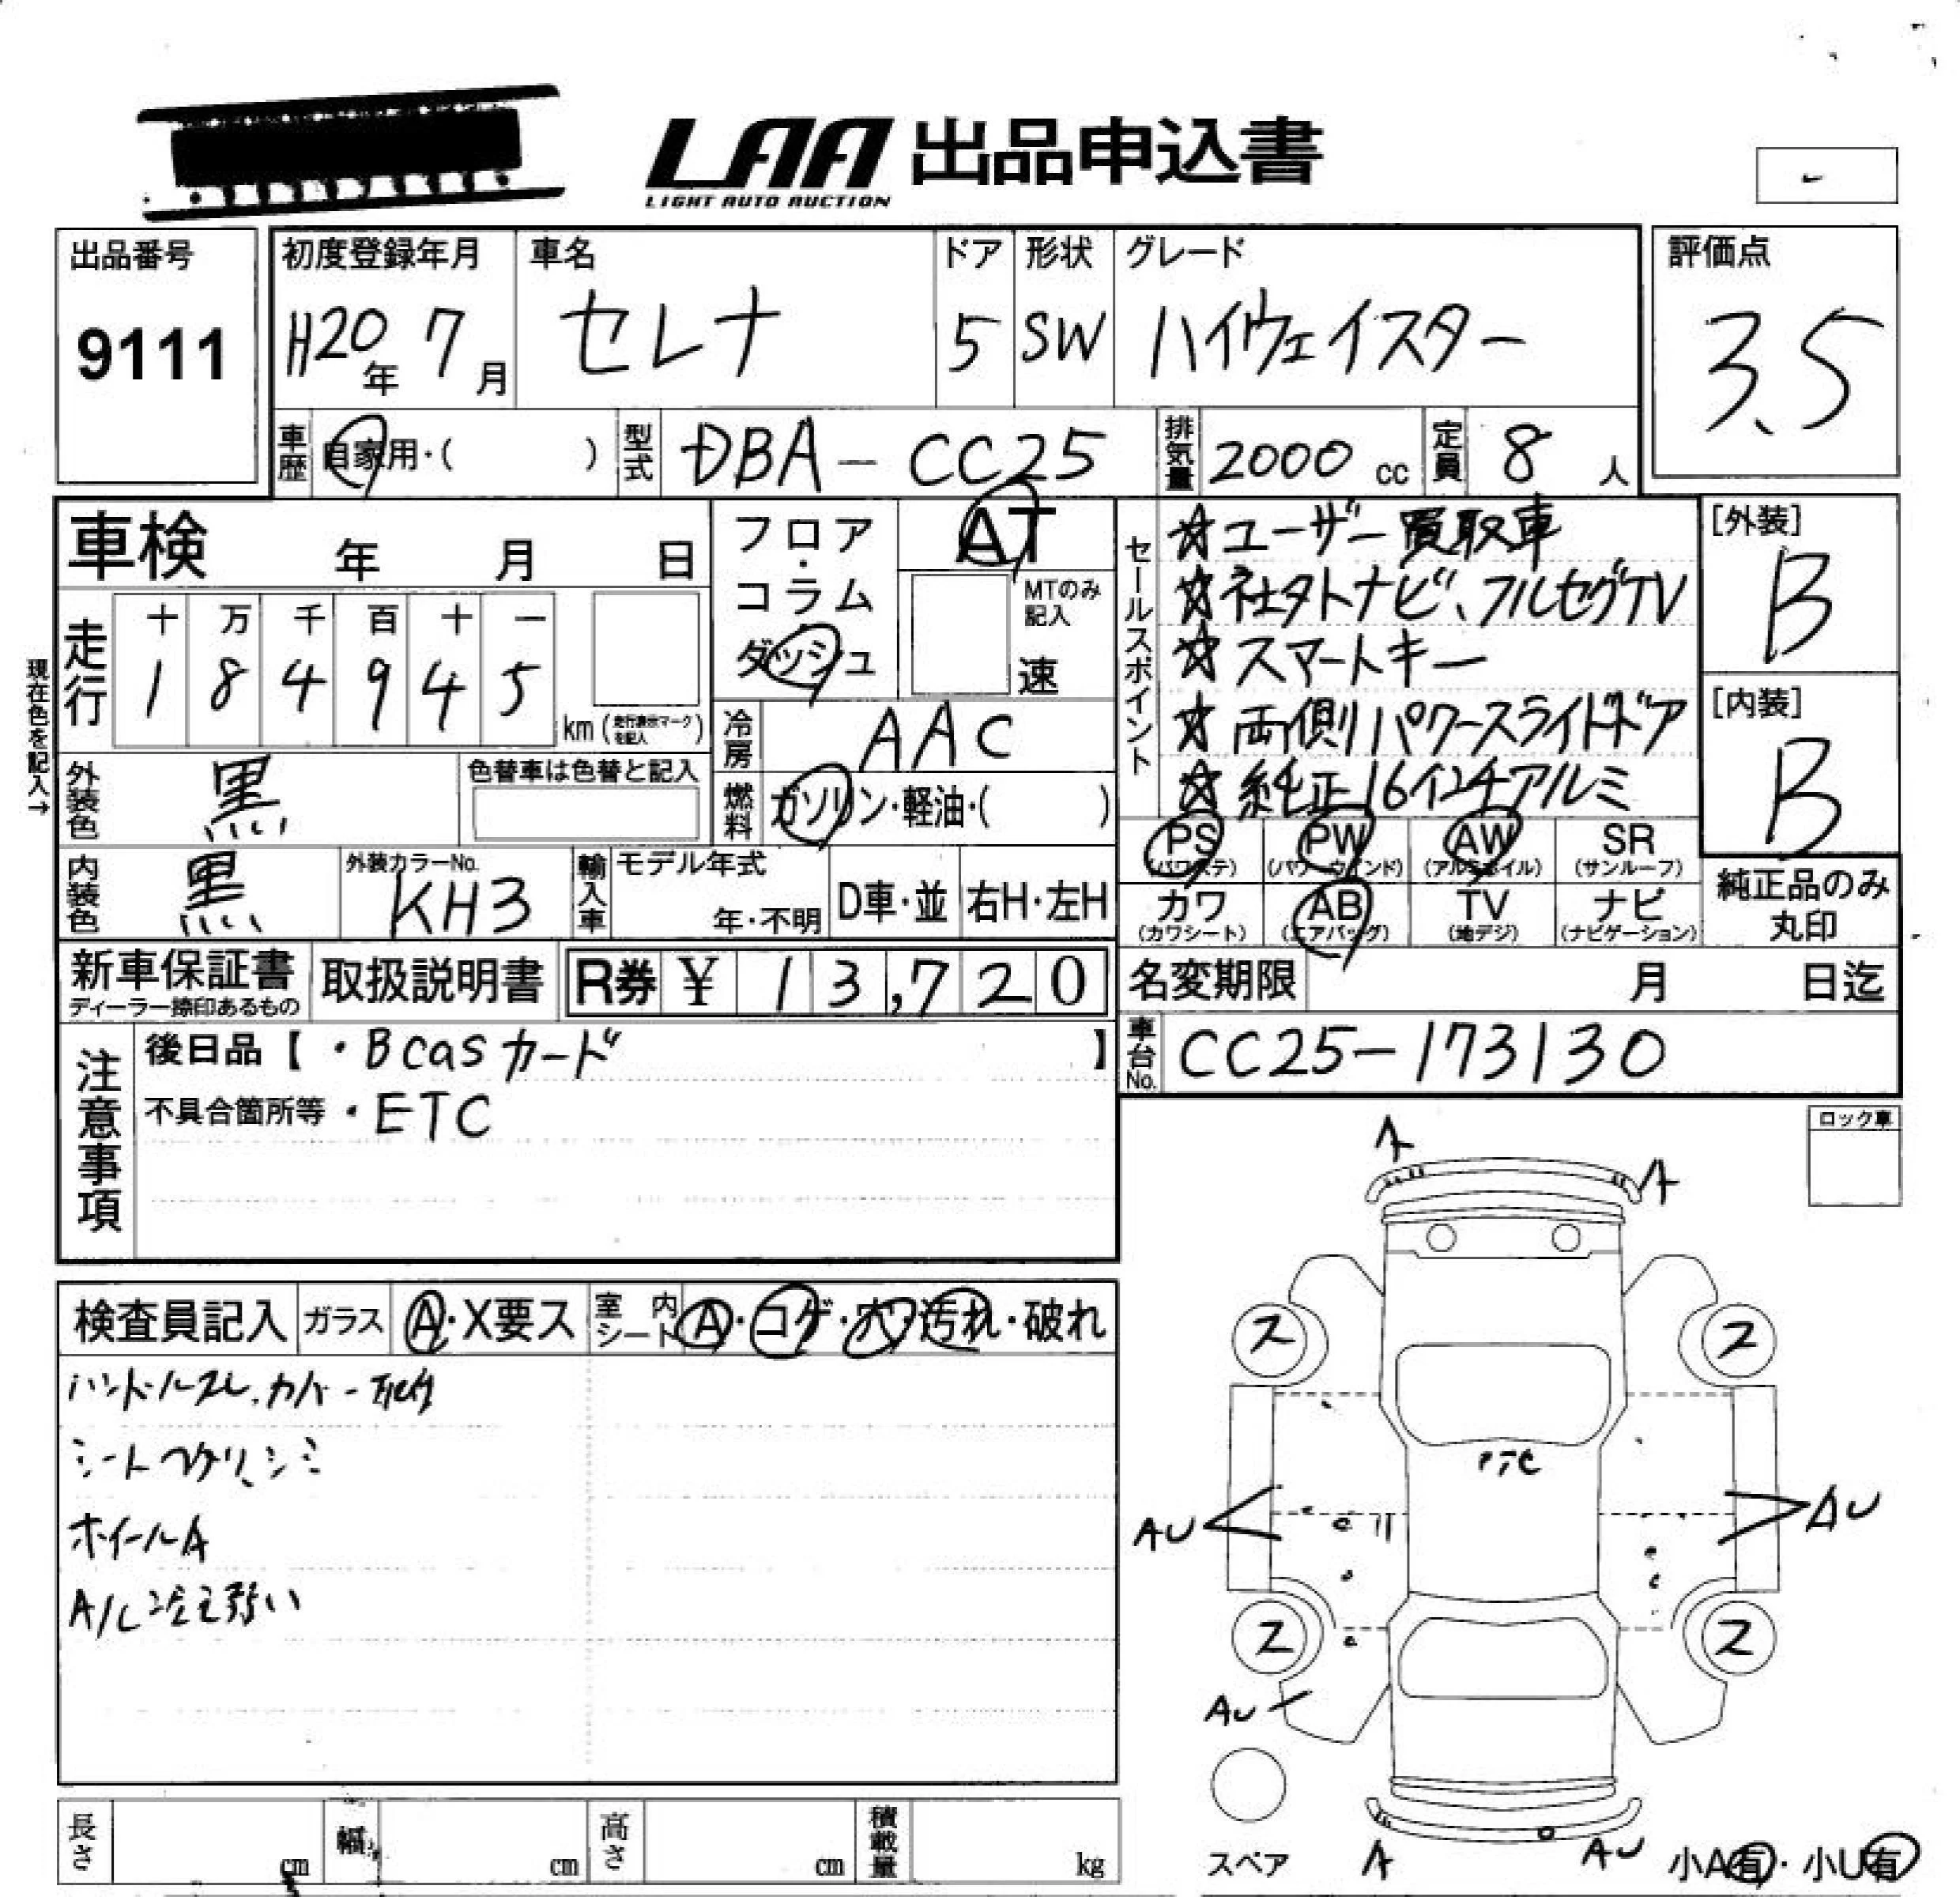 LAA 出品申込書
LIGHT AUTO AUCTION
出品番号
9111
初度登録年月
H20年 7月
車名
セレナ
ドア
5
形状
SW
グレード
ハイウェイスター
評価点
3.5
車歴 自家用・( )
型式 DBA-CC25
排気量 2000 cc
定員 8 人
車検 年 月 日
現在色を記入→
走行
十 万 千 百 十 一
1 8 4 9 4 5
km (走行表示マークを記入)
フロア・コラム
ダッシュ
AT
MTのみ記入
速
冷房 AAC
燃料 ガソリン・軽油・( )
外装色 黒
色替車は色替と記入
内装色 黒
外装カラーNo.
KH3
輸入車 モデル年式
年・不明
D車・並
右H・左H
セールスポイント
☆ユーザー買取車
☆社外ナビ、フルセグTV
☆スマートキー
☆両側パワースライドドア
☆純正16インチアルミ
[外装]
B
[内装]
B
PS (パワステ)
PW (パワーウインド)
AW (アルミホイル)
SR (サンルーフ)
カワ (カワシート)
AB (エアバッグ)
TV (地デジ)
ナビ (ナビゲーション)
純正品のみ
丸印
新車保証書
ディーラー捺印あるもの
取扱説明書
R券 ¥ 13,720
名変期限 月 日迄
車台No. CC25-173130
注意事項
後日品【・Bcasカード 】
不具合箇所等・ETC
ロック車
検査員記入
ガラス A・X要ス
室内シート A・コゲ・穴・汚れ・破れ
ハンドルスレ、カバー取付
シートヘタリ、シミ
ホイールA
A/C冷え弱い
A
A
ス
ス
AU
AU
ス
ス
AU
A
AU
スペア
小A有・小U有
長さ cm
幅 cm
高さ cm
積載量 kg